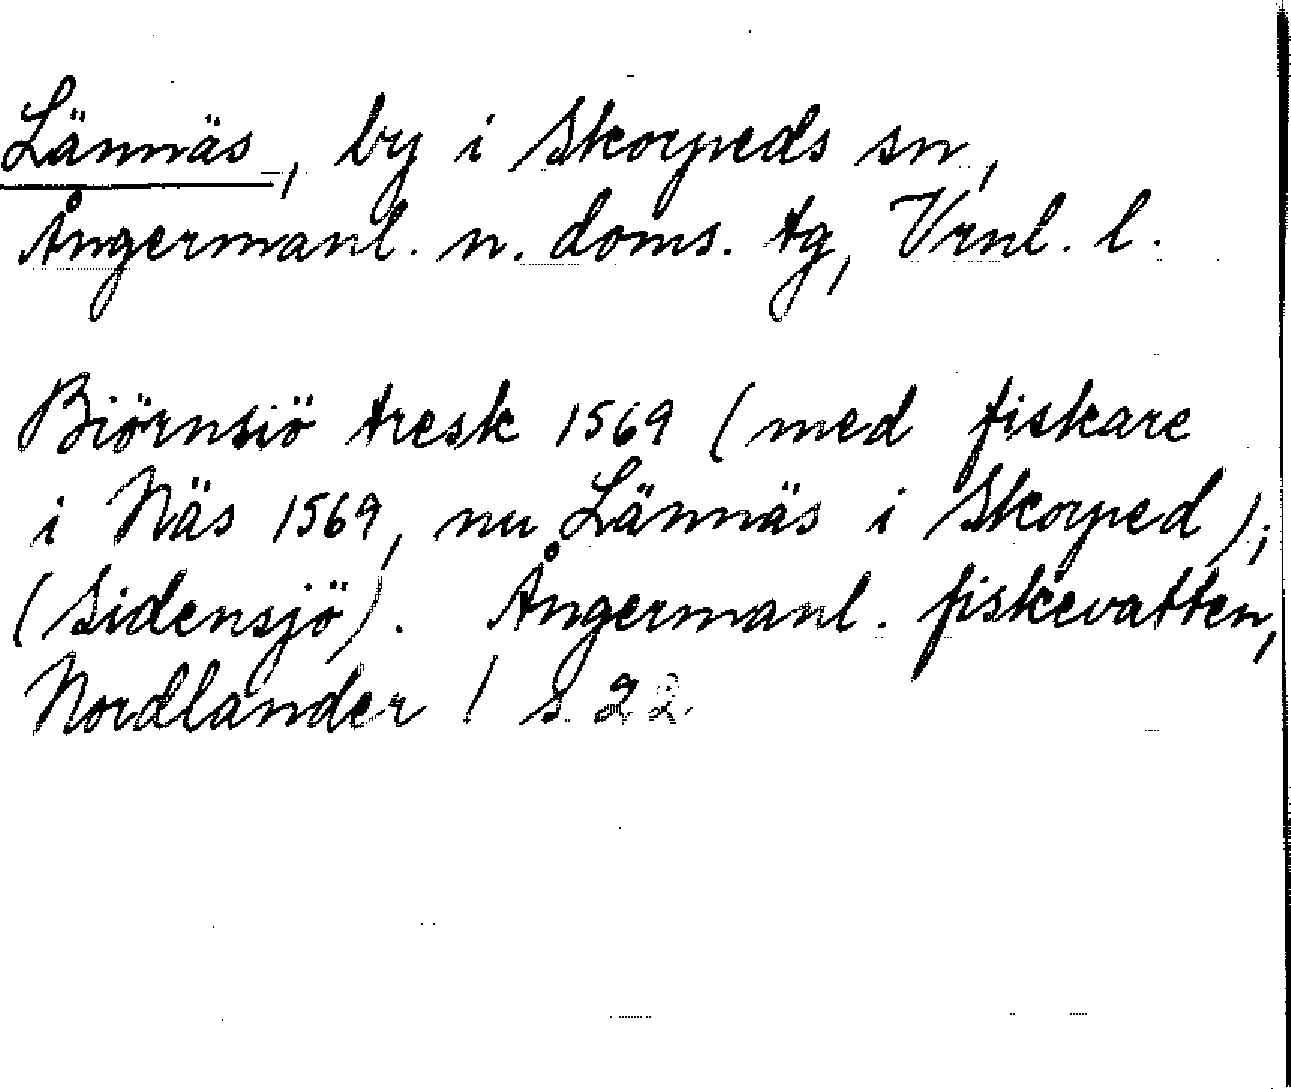 Lännäs, by i Skorpeds sn,
Ångermanl. n. doms. tg, Vrnl. l.
Biörnsiö tresk 1569 (med fiskare
i Näs 1569, nu Lännäs i Skorped);
(Sidensjö). Ångermanl. fiskevatten,
Nordlander / s. 22